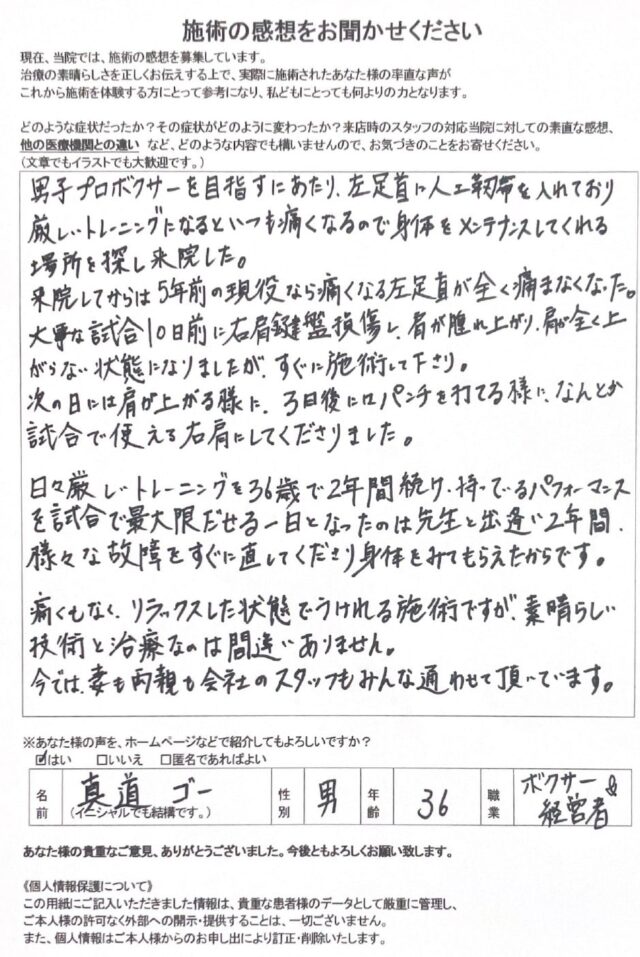 施術の感想をお聞かせください
現在、当院では、施術の感想を募集しています。
治療の素晴らしさを正しくお伝えする上で、実際に施術されたあなた様の率直な声が
これから施術を体験する方にとって参考になり、私どもにとっても何よりの力となります。
どのような症状だったか？その症状がどのように変わったか？来店時のスタッフの対応当院に対しての素直な感想、
他の医療機関との違い など、どのような内容でも構いませんので、お気づきのことをお寄せください。
（文章でもイラストでも大歓迎です。）
男子プロボクサーを目指すにあたり、左足首に人工靭帯を入れており
厳しいトレーニングになるといつも痛くなるので身体をメンテナンスしてくれる
場所を探し来院した。
来院してからは5年前の現役なら痛くなる左足首が全く痛まなくなった。
大事な試合10日前に右肩鍵盤損傷し、肩が腫れ上がり、肩が全く上
がらない状態になりましたが、すぐに施術して下さり。
次の日には肩が上がる様に、3日後にはパンチを打てる様に、なんとか
試合で使える右肩にしてくださりました。
日々厳しいトレーニングを36歳で2年間続け、持っているパフォーマンス
を試合で最大限だせる一日となったのは先生と出逢い2年間、
様々な故障をすぐに直してくださり身体をみてもらえたからです。
痛くもなく、リラックスした状態でうけれる施術ですが、素晴らしい
技術と治療なのは間違いありません。
今では、妻も両親も会社のスタッフもみんな通わせて頂いています。
※あなた様の声を、ホームページなどで紹介してもよろしいですか？
☑はい □いいえ □匿名であればよい
名前 真道 ゴー 性別 男 年齢 36 職業 ボクサー&
（イニシャルでも結構です。） 経営者
あなた様の貴重なご意見、ありがとうございました。今後ともよろしくお願い致します。
《個人情報保護について》
この用紙にご記入いただきました情報は、貴重な患者様のデータとして厳重に管理し、
ご本人様の許可なく外部への開示・提供することは、一切ございません。
また、個人情報はご本人様からのお申し出により訂正・削除いたします。